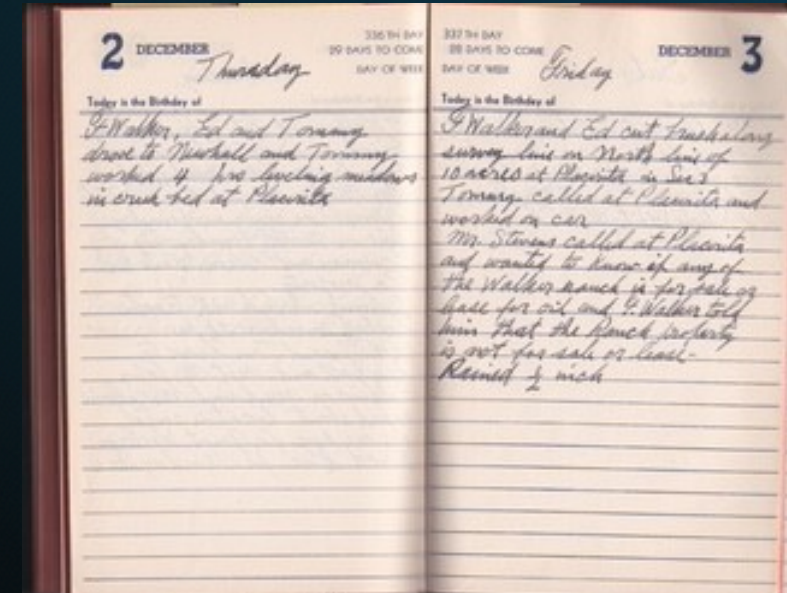 2 DECEMBER
Thursday
336 TH DAY
29 DAYS TO COME
DAY OF WEEK
Today is the Birthday of
F Walker, Ed and Tommy
drove to Newhall and Tommy
worked 4 hrs leveling meadows
in creek bed at Placerita
337 TH DAY
28 DAYS TO COME
DAY OF WEEK
Friday
DECEMBER 3
Today is the Birthday of
F Walker and Ed cut brush along
survey line on North line of
10 acres at Placerita in Sec
Tommy called at Placerita and
worked on car
Mr. Stevens called at Placerita
and wanted to know if any of
the Walker ranch is for sale or
lease for oil and F. Walker told
him that the Ranch property
is not for sale or lease-
Rained ½ inch